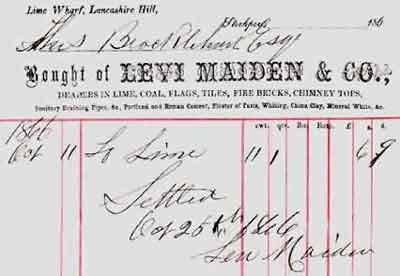 Lime Wharf, Lancashire Hill,
Stockport, 186
Brocklehurst Esqr
Bought of LEVI MAIDEN & CO.,
DEALERS IN LIME, COAL, FLAGS, TILES, FIRE BRICKS, CHIMNEY TOPS,
Sanitary Draining Pipes, &c., Portland and Roman Cement, Plaster of Paris, Whiting, China Clay, Mineral White, &c.
cwt. qrs. £ s. d.
1866
Oct 11 To Lime 11 1 6 9
Settled
Oct 25th 1866
Levi Maiden